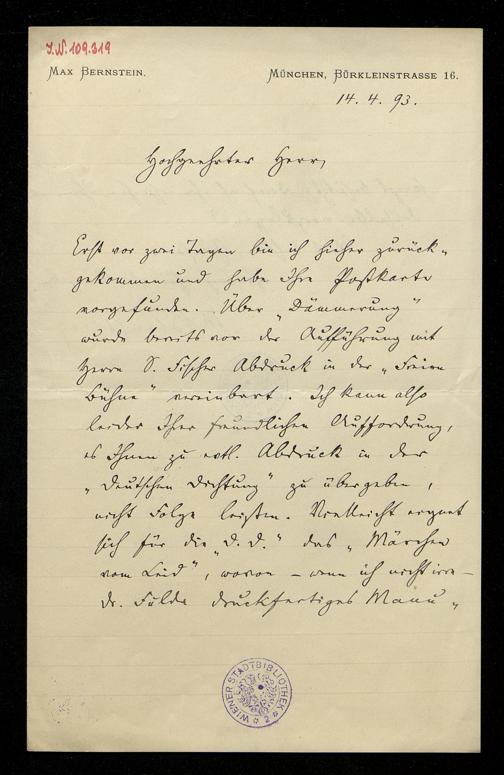 J.N. 109.319
MAX BERNSTEIN.
MÜNCHEN, BÜRKLEINSTRASSE 16.
14. 4. 93.
Hochgeehrter Herr,
Erst vor zwei Tagen bin ich hieher zurück-
gekommen und habe Ihre Postkarte
vorgefunden. Über „Dämmerung“
wurde bereits vor der Aufführung mit
Herrn S. Fischer Abdruck in der „Freien
Bühne“ vereinbart. Ich kann also
leider Ihrer freundlichen Aufforderung,
es Ihnen zu evtl. Abdruck in der
„Deutschen Dichtung“ zu übergeben,
nicht Folge leisten. Vielleicht eignet
sich für die „D. D.“ das „Märchen
vom Leid“, wovon – wenn ich nicht irre –
Dr. Fulda druckfertiges Manu-
WIENER STADTBIBLIOTHEK
2